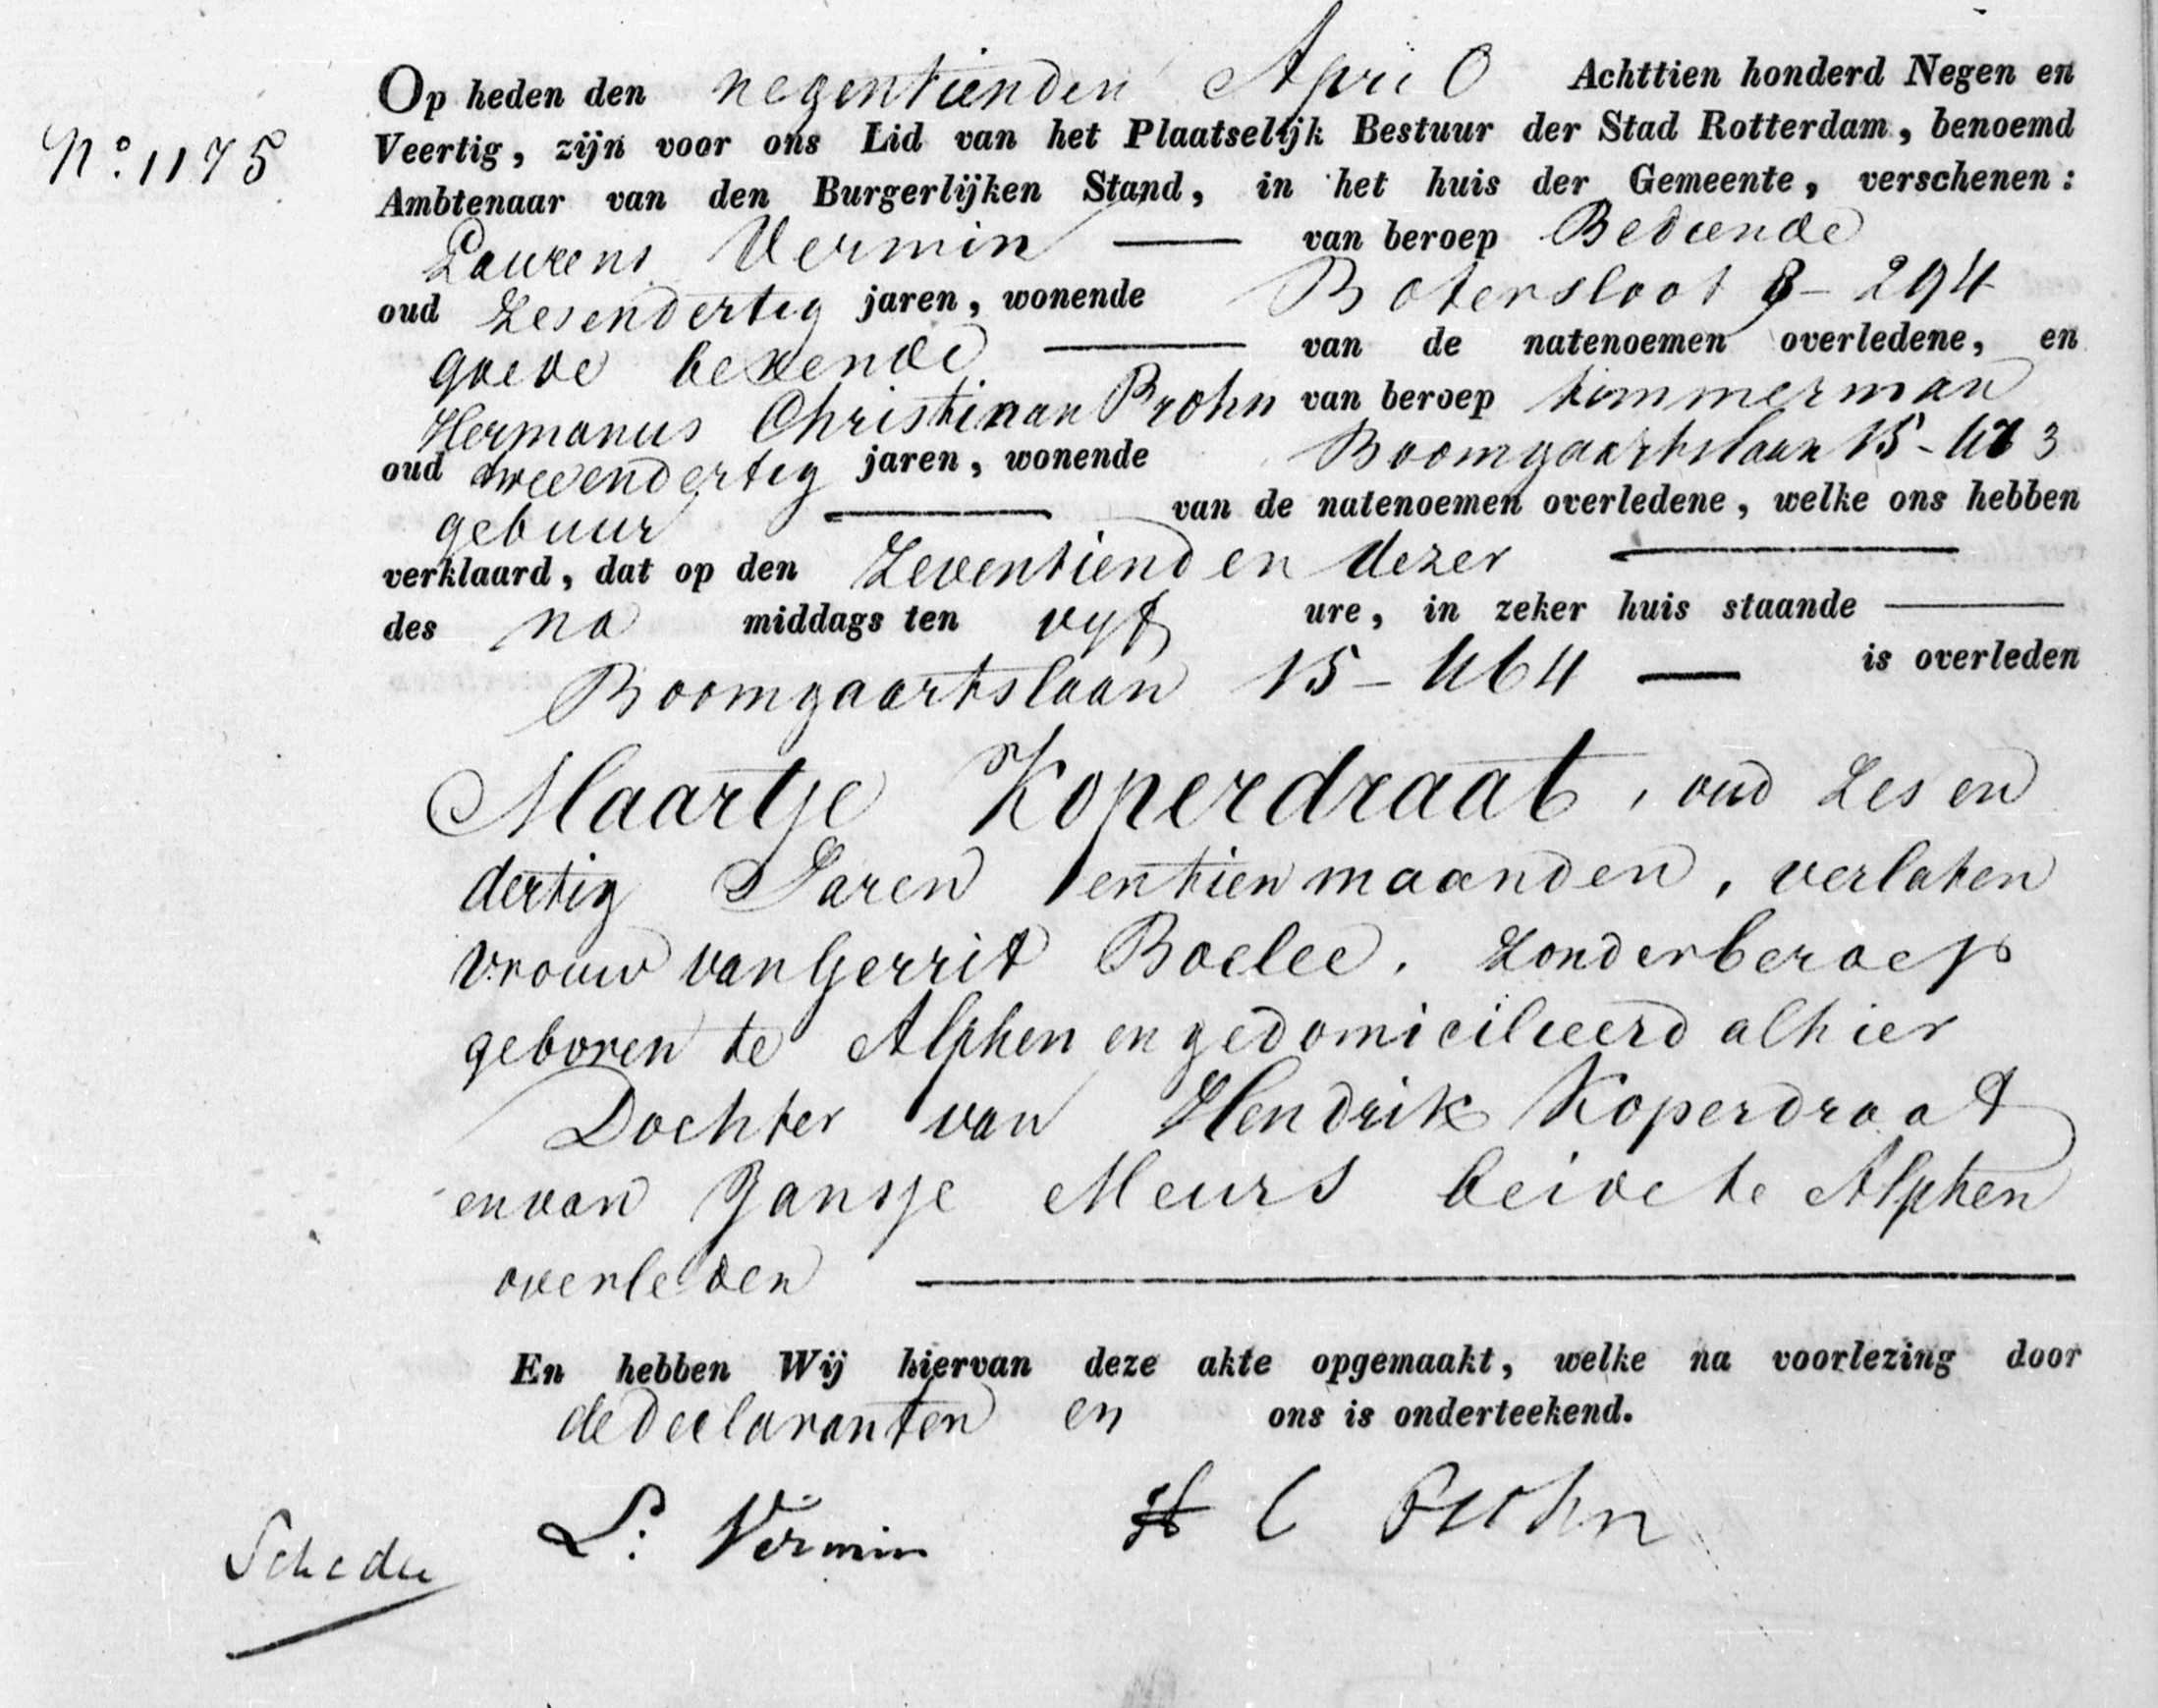 Op heden den negentienden April Achttien honderd Negen en
N.º 1175
Veertig, zijn voor ons Lid van het Plaatselijk Bestuur der Stad Rotterdam, benoemd
Ambtenaar van den Burgerlijken Stand, in het huis der Gemeente, verschenen:
Laurens Vermin van beroep Bediende
oud Zesendertig jaren, wonende Botersloot 8-294
goede bekende van de natenoemen overledene, en
Hermanus Christinan Brohn van beroep timmerman
oud tweeendertig jaren, wonende Boomgaartslaan 15-
gebuur van de natenoemen overledene, welke ons hebben
verklaard, dat op den Zeventienden dezer
des na middags ten vyf ure, in zeker huis staande
Boomgaartslaan 15-464 is overleden
Maartje Koperdraat, oud Zes en
dertig Jaren en tien maanden, verlaten
vrouw van Gerrit Boelee. Zonder beroep
geboren te Alphen en gedomicilieerd alhier
Dochter van Hendrik Koperdraat
en van Jansje Meurs beide te Alphen
overleden
En hebben Wij hiervan deze akte opgemaakt, welke na voorlezing door
de declaranten en ons is onderteekend.
L: Vermin H C Brohn